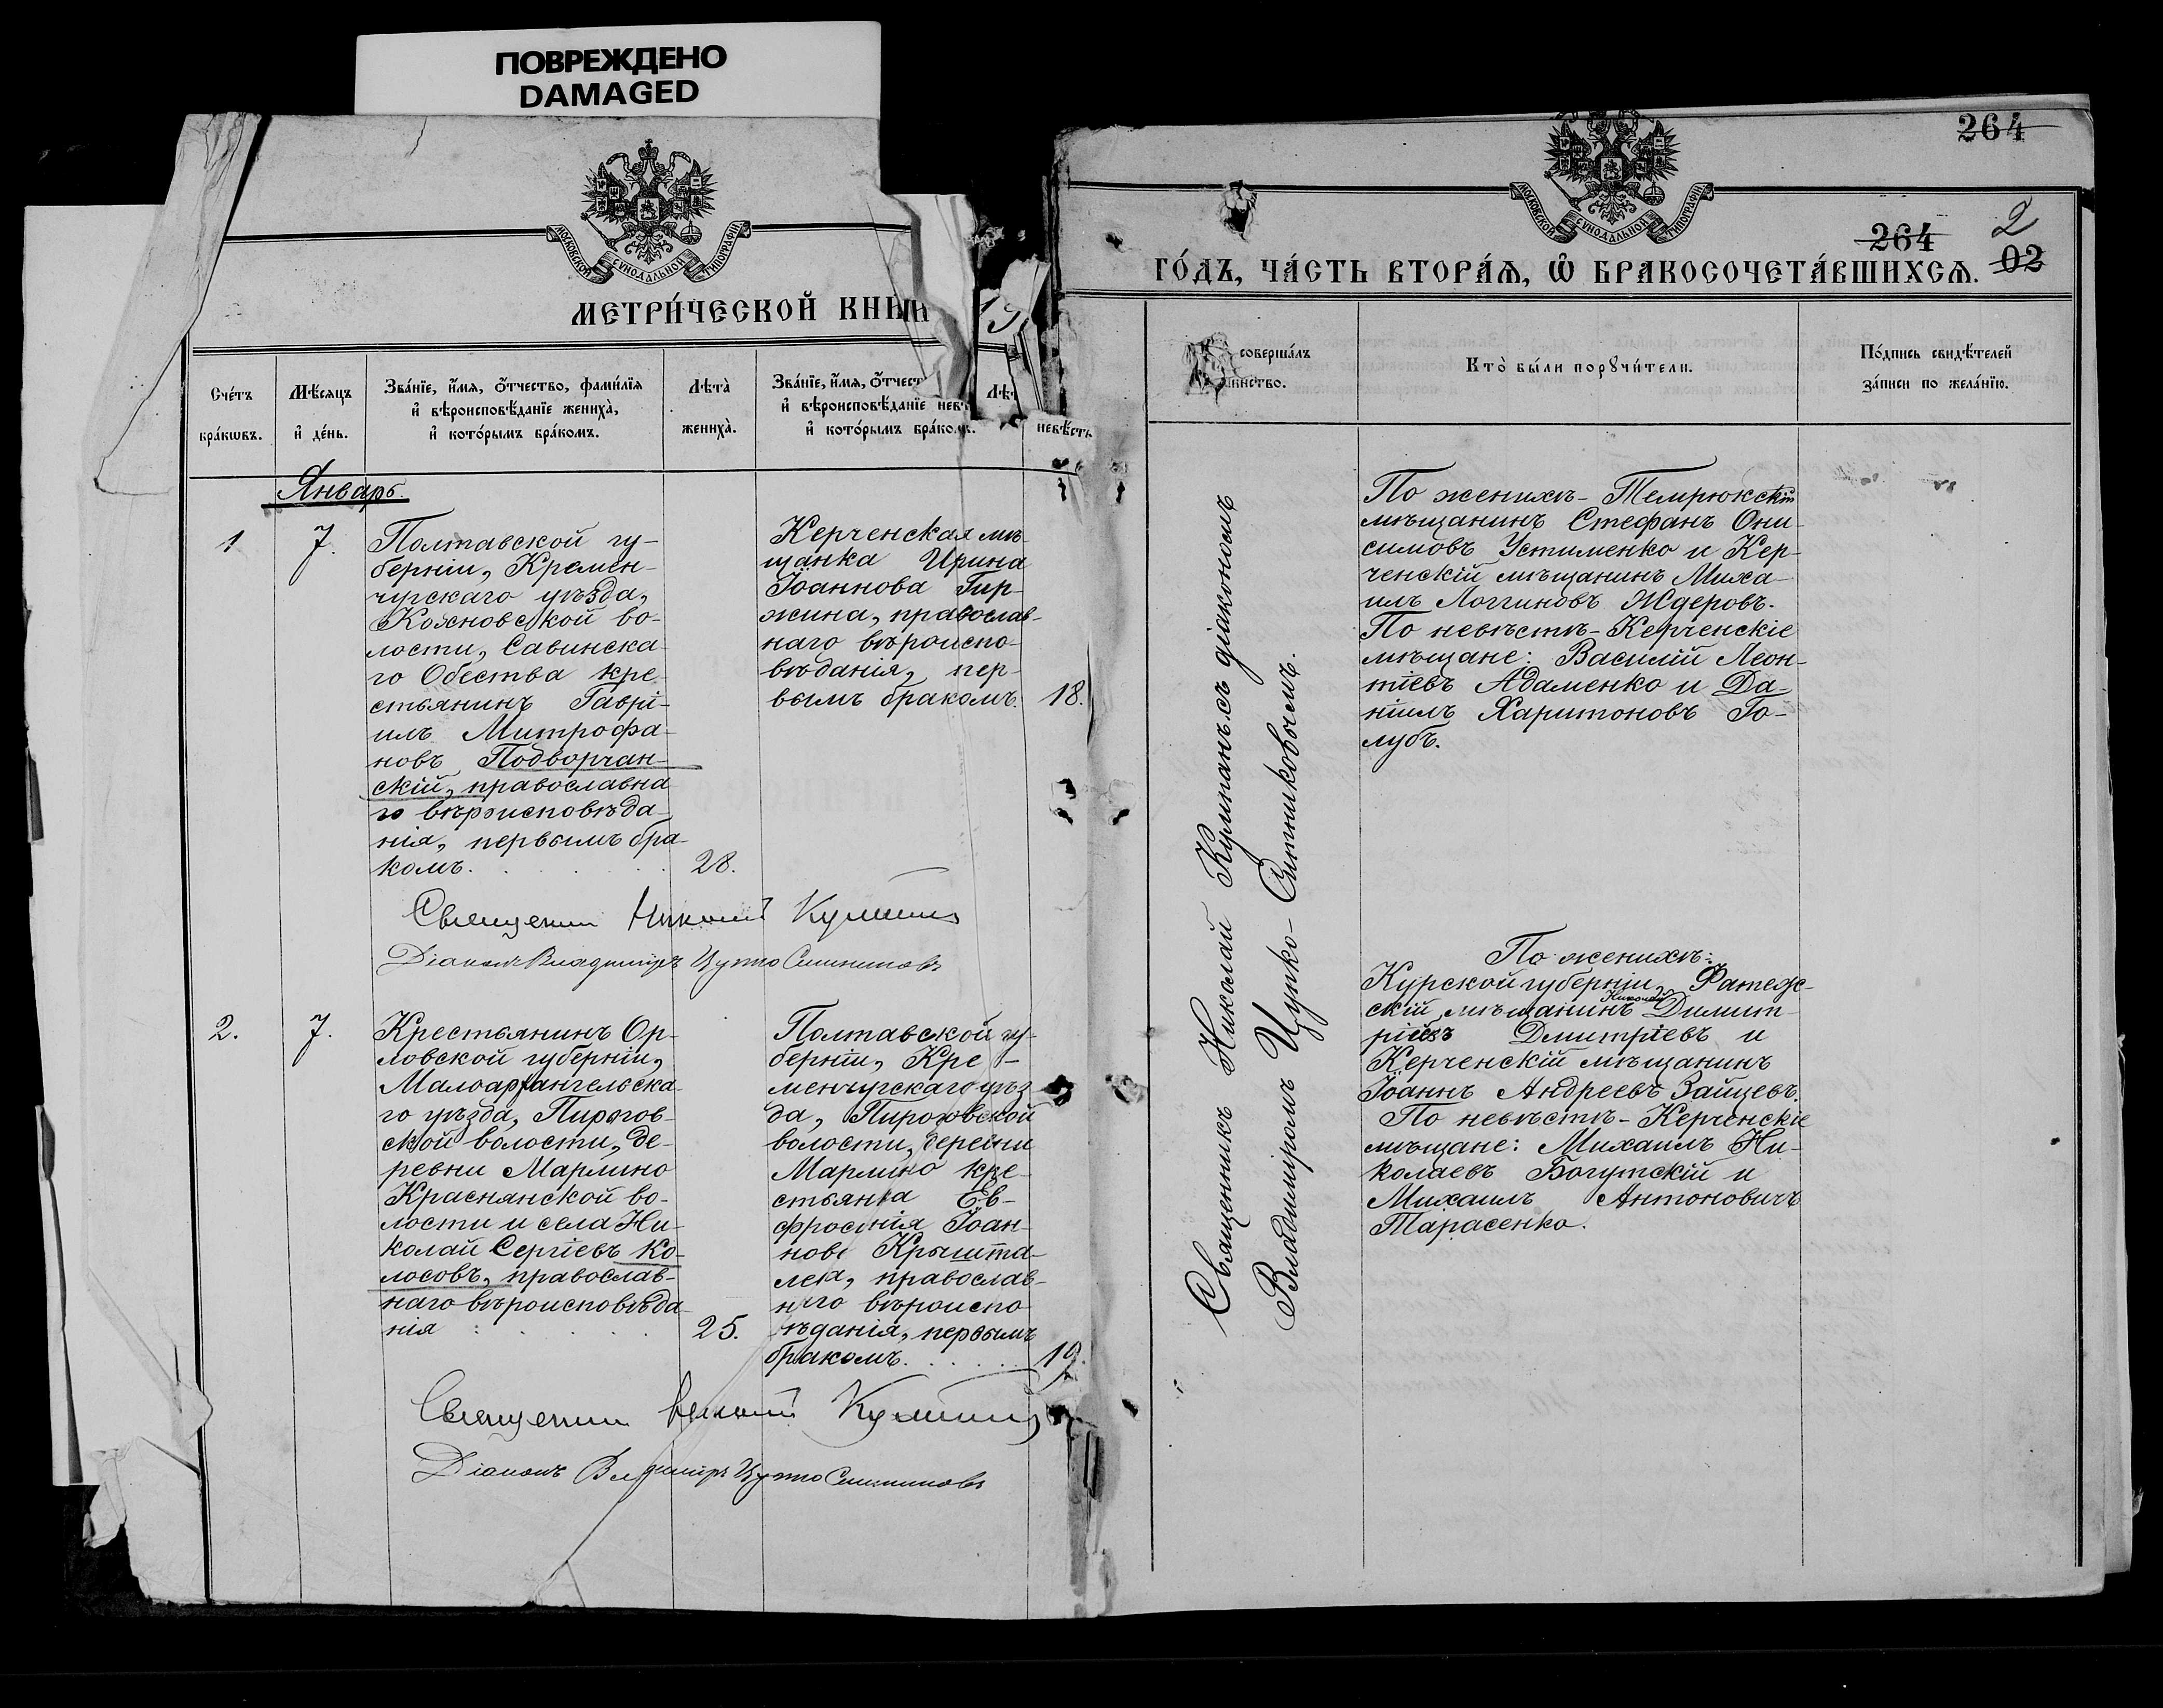 ПОВРЕЖДЕНО
DAMAGED
МОСКОВСКОЙ СѴНОДАЛЬНОЙ ТИПОГРАФІИ
МЕТРИ́ЧЕСКОЙ КНИГИ
Сче́тъ бра́кѡвъ.
Мѣ́сяцъ и҆ де́нь.
Зва́нїе, и҆́мя, ѻ҆́тчество, фами́лїя
и҆ вѣроисповѣ́данїе жениха̀,
и҆ кото́рымъ бра́комъ.
Лѣта̀ жениха̀.
Зва́нїе, и҆́мя, ѻ҆́тчест
и҆ вѣроисповѣ́данїе нев
и҆ кото́рымъ бра́комъ.
Лѣ
невѣ́стъ
Январь.
1
7.
Полтавской гу-
берніи, Кремен-
чугскаго уѣзда,
Кохновской во-
лости, Савинска
го Обества кре
стьянинъ Гаврі-
илъ Митрофа-
новъ Подворчан-
скій, православна
го вѣроисповѣда-
нія, первымъ бра-
комъ.
28.
Керченская мѣ-
щанка Ирина
Іоаннова Гир-
жина, православ-
наго вѣроиспо-
вѣданія, пер-
вымъ бракомъ.
18.
Священник Николай Кулипанъ
Діаконъ Владиміръ Цупко Ситниковъ
2.
7.
Крестьянинъ Ор-
ловской губерніи,
Малоархангельска-
го уѣзда, Пирогов-
ской волости, де-
ревни Марлино
Краснянской во-
лости и села Ни-
колай Сергіевъ Ко-
лосовъ, православ-
наго вѣроисповѣда-
нія
25.
Полтавской гу-
берніи, Кре-
менчугскаго уѣз
да, Пироговской
волости, деревни
Марлино кре-
стьянка Ев-
фросинія Іоан-
нова Крышта-
лева, православ-
наго вѣроиспо
вѣданія, первымъ
бракомъ.
19.
Священник Николай Кулипанъ
Діаконъ Владиміръ Цупко Ситниковъ
264
МОСКОВСКОЙ СѴНОДАЛЬНОЙ ТИПОГРАФІИ
264
2
02
ГО́ДЪ, ЧА́СТЬ ВТОРА́Я, Ѽ БРАКОСОЧЕТА́ВШИХСЯ.
соверша́лъ
Кто̀ бы́ли порꙋчи́тели.
По́дпись свидѣ́телей
за́писи по жела́нїю.
Священникъ Николай Кулипанъ съ діакономъ
Владиміромъ Цупко-Ситниковымъ.
По женихѣ - Темрюкскій
мѣщанинъ Стефанъ Они-
симовъ Устименко и Кер-
ченскій мѣщанинъ Миха-
илъ Логгиновъ Ждеровъ.
По невѣстѣ - Керченскіе
мѣщане: Василій Леон-
тіевъ Адаменко и Да-
ніилъ Харитоновъ Го-
лубъ.
По женихѣ:
Курской губерніи, Фатеж-
скій мѣщанинъ Николай Димит-
ріевъ Дмитріевъ и
Керченскій мѣщанинъ
Іоаннъ Андреевъ Зайцевъ.
По невѣстѣ - Керченскіе
мѣщане: Михаилъ Ни-
колаевъ Богутскій и
Михаилъ Антоновичъ
Тарасенко.